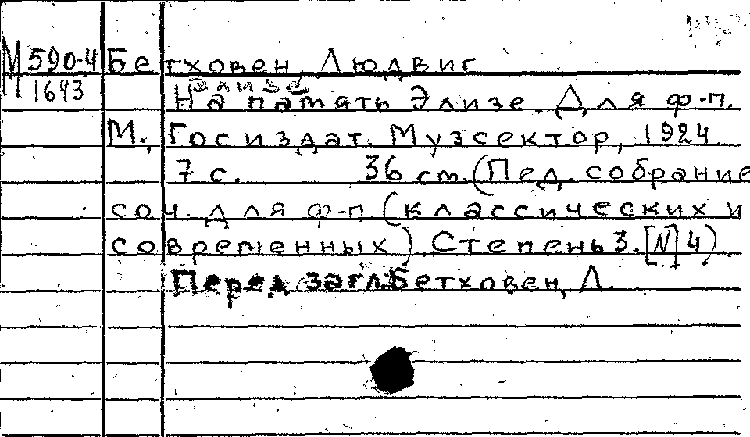 М 590-4 Бетховен, Людвиг
1643 Элизе
На память Элизе. Для ф-п.
М., Госиздат. Музсектор, 1924.
7 с. 36 см. (Пед. собрание
соч. для ф-п (классических и
современных). Степень 3. [N] 4)
Перед загл. Бетховен, Л.